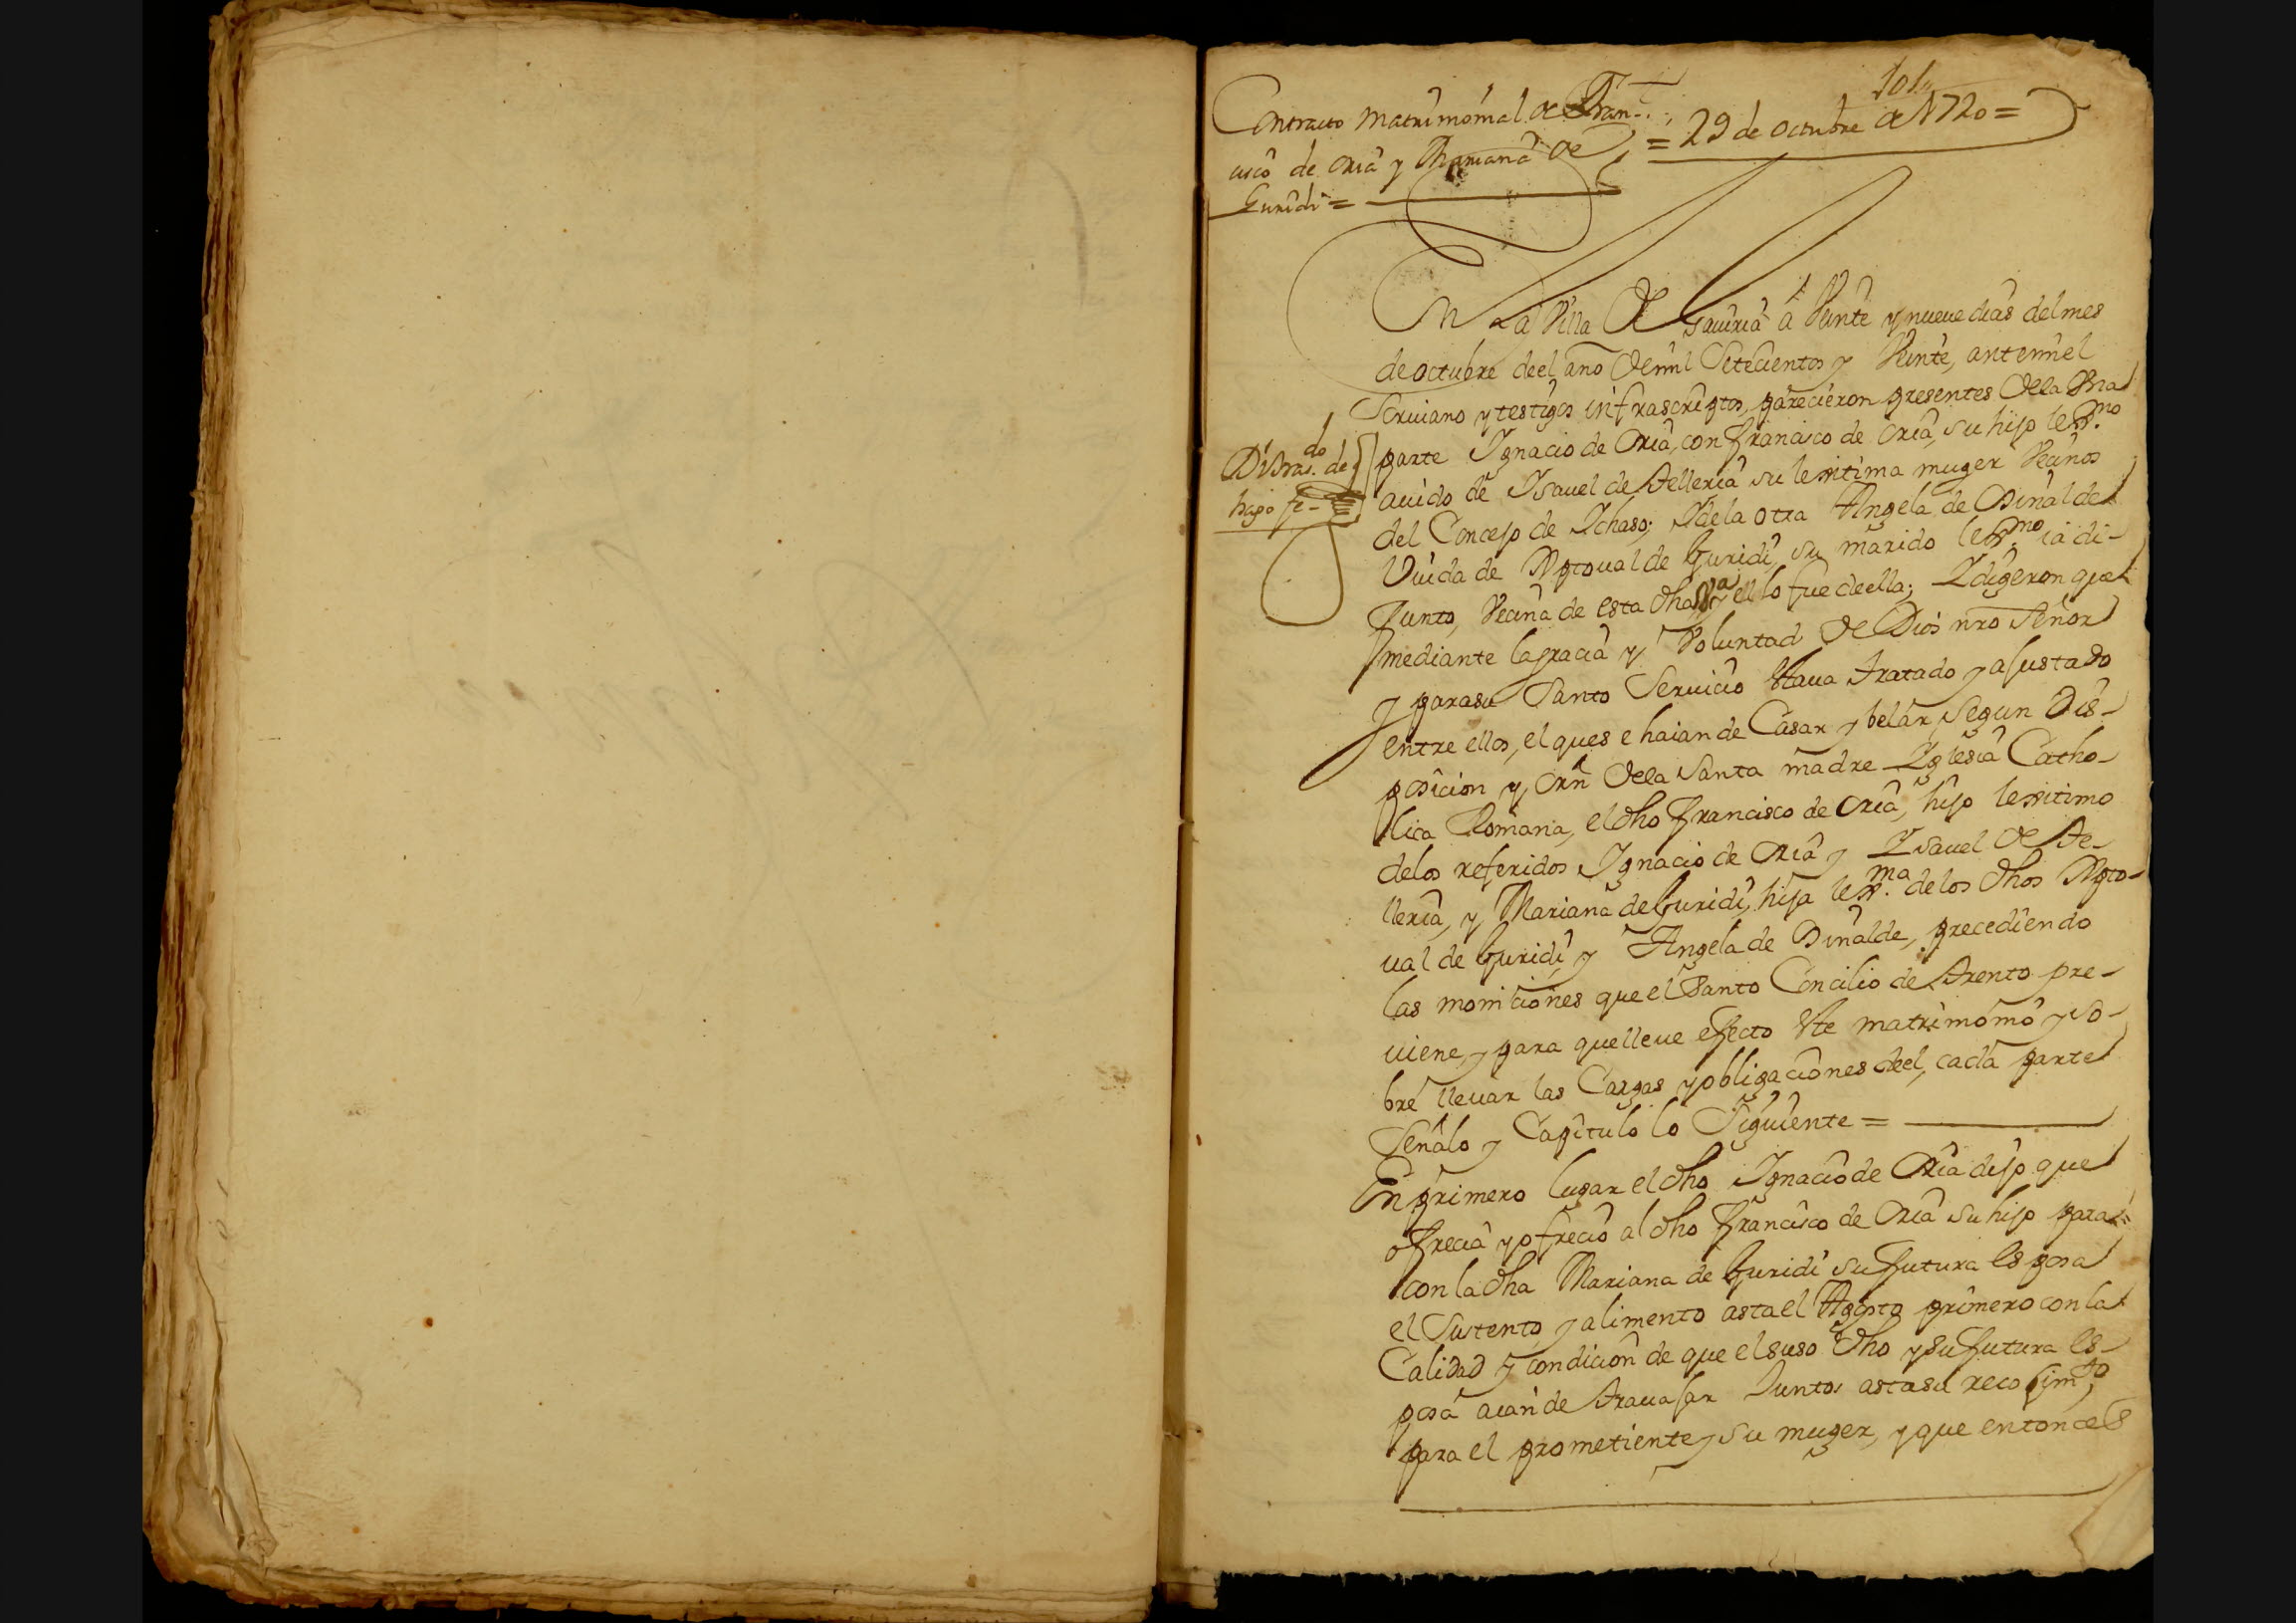 101
Contracto matrimonial de Fran-
cisco de oria y Mariana de
Guridi =
= 29 de octubre de 1720 =
En La Villa de Segura a Veinte y nueue dias del mes
de octubre deel año de mil Setecientos y Veinte, ante mi el
Scriuano y testigos infrascriptos, parecieron presentes de la Vna
parte Ignacio de Oria, con francisco de Oria, su hijo lexmo.
auido de Ysauel de Telleria su lexitima muger Vecinos
del Concejo de Ychaso; Y de la otra Angela de
Viuda de Xptoual de Guridi, su marido lexmo ia di-
funto, Vecina de esta dha Va y el lo fue de ella; Y digeron que
mediante la gracia y Voluntad de Dios nro Señor
y para su Santo Seruicio Staua tratado y ajustado
entre ellos, el que se haian de Casar y belar, Segun Dis-
posicion y orn de la Santa madre Yglesia Catho-
lica Romana, el dho francisco de Oria, hijo lexitimo
de los referidos Ignacio de Oria y Ysauel de Te-
lleria, y Mariana de Guridi, hija lexma. de los dhos Xpto-
ual de Guridi, y Angela de precediendo
las moniciones que el Santo Concilio de Trento pre-
uiene, y para que lleue efecto Ste matrimonio y so-
bre lleuar las Cargas y obligaciones deel, cada parte
Señalo y Capitulo lo Siguiente =
En primero lugar el dho Ignacio de Oria dijo que
ofrecia y ofrecio al dho francisco de Oria su hijo para
con la dha Mariana de Guridi su futura esposa
el Sustento y alimento asta el Agosto primero con la
Calidad y condicion de que el suso dho y su futura es-
posa aian de trauajar Juntos asta su recojimto
para el prometiente y su muger, y que entonces
do de
hago fe -